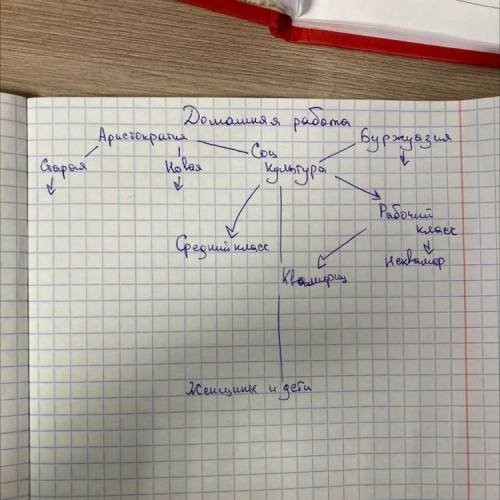 Домашняя работа
Аристократия
Буржуазия
Соц
культура
Старая
Новая
Рабочий
класс
Средний класс
Неквалиф
Квалифиц
Женщины и дети